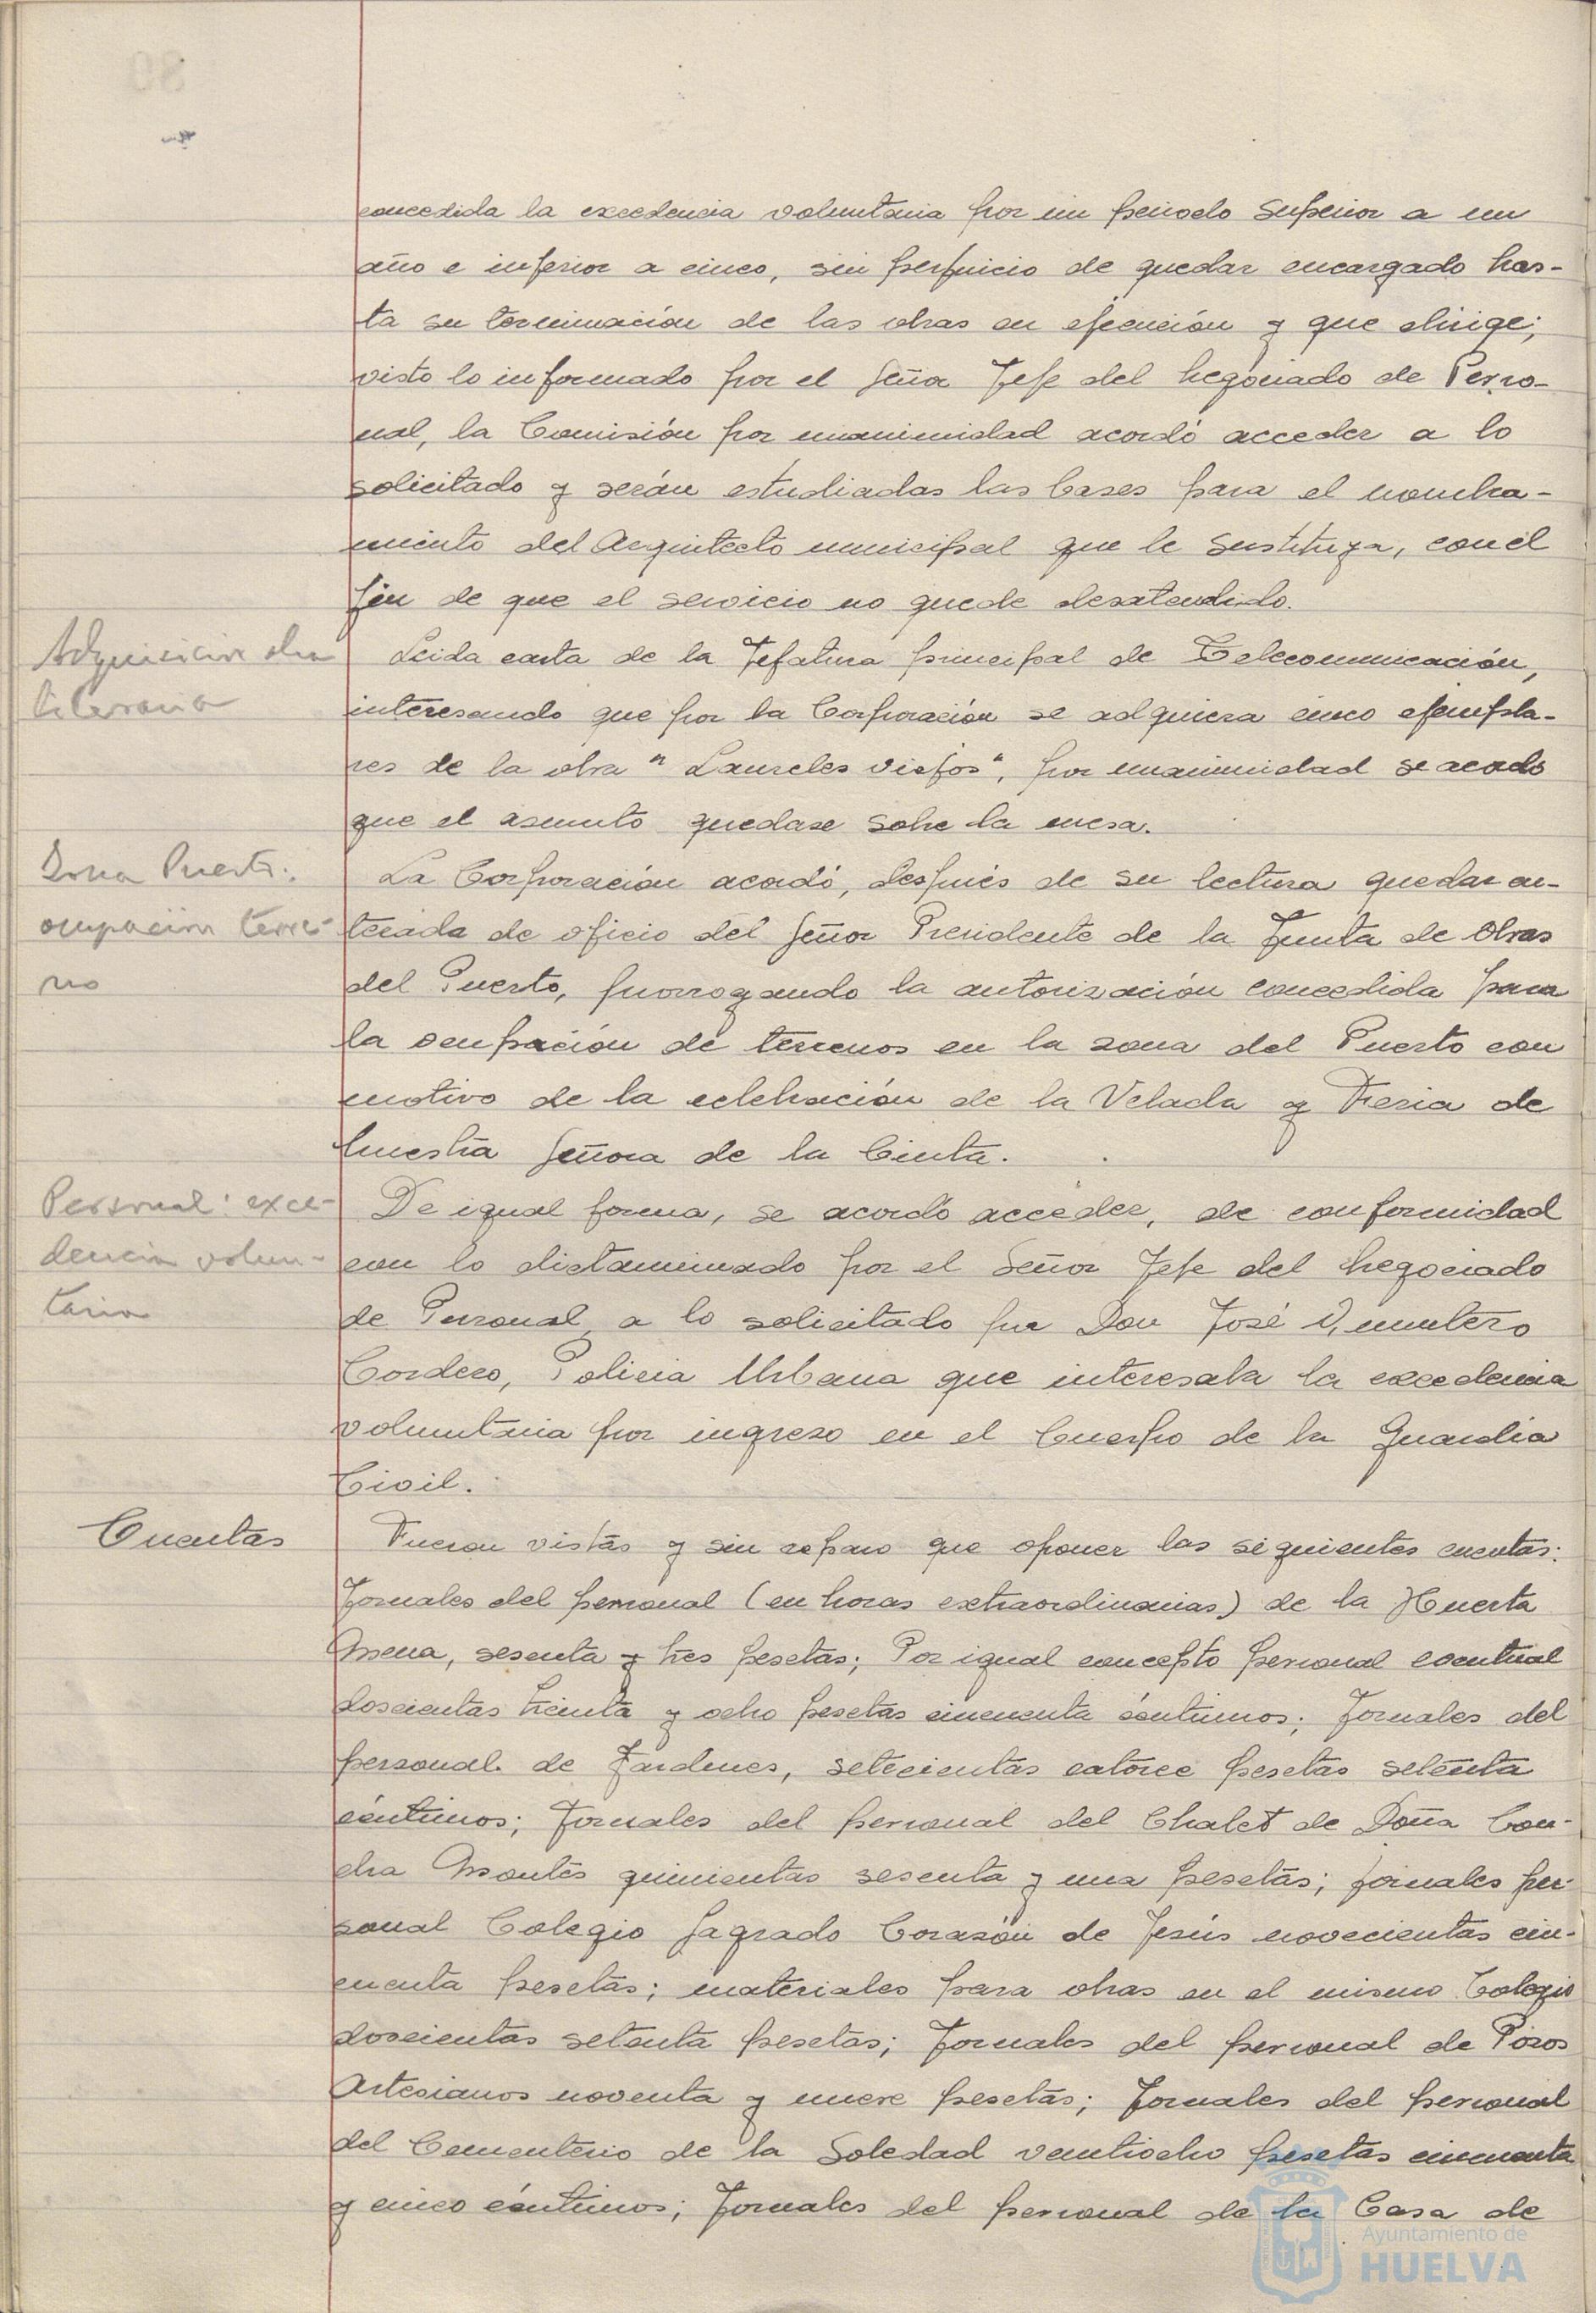 concedida la excedencia voluntaria por un período superior a un
año e inferior a cinco, sin perjuicio de quedar encargado has-
ta su terminación de las obras en ejecución y que dirige;
visto lo informado por el Señor Jefe del Negociado de Perso-
nal, la Comisión por unanimidad acordó acceder a lo
solicitado y serán estudiadas las bases para el nombra-
miento del Arquitecto municipal que le sustituya, con el
fin de que el servicio no quede desatendido.
Adquisición obra
literaria
Leida carta de la Jefatura principal de Telecomunicación,
interesando que por la Corporación se adquiera cinco ejempla-
res de la obra "Laureles viejos", por unanimidad se acordó
que el asunto quedase sobre la mesa.
Zona Puerto:
ocupación terre-
no
La Corporación acordó, después de su lectura quedar en-
terada de oficio del Señor Presidente de la Junta de Obras
del Puerto, prorrogando la autorización concedida para
la ocupación de terrenos en la zona del Puerto con
motivo de la celebración de la Velada y Feria de
Nuestra Señora de la Cinta.
Personal: exce-
dencia volun-
taria
De igual forma, se acordó acceder, de conformidad
con lo dictaminado por el Señor Jefe del Negociado
de Personal, a lo solicitado por Don José
Cordero, Policia Urbana que interesaba la excedencia
voluntaria por ingreso en el Cuerpo de la Guardia
Civil.
Cuentas
Fueron vistas y sin reparo que oponer las siguientes cuentas:
Jornales del personal (en horas extraordinarias) de la Huerta
Mena, sesenta y tres pesetas; Por igual concepto personal eventual
doscientas treinta y ocho pesetas cincuenta céntimos; Jornales del
personal de Jardines, setecientas catorce pesetas setenta
céntimos; Jornales del personal del Chalet de Doña Con-
cha Montes quinientas sesenta y una pesetas; jornales per-
sonal Colegio Sagrado Corazón de Jesús novecientas cin-
cuenta pesetas; materiales para obras en el mismo Colegio
doscientas setenta pesetas; Jornales del personal de Pozos
Artesianos noventa y nueve pesetas; Jornales del personal
del Cementerio de la Soledad veintiocho pesetas cincuenta
y cinco céntimos; Jornales del personal de la Casa de
Ayuntamiento de
HUELVA